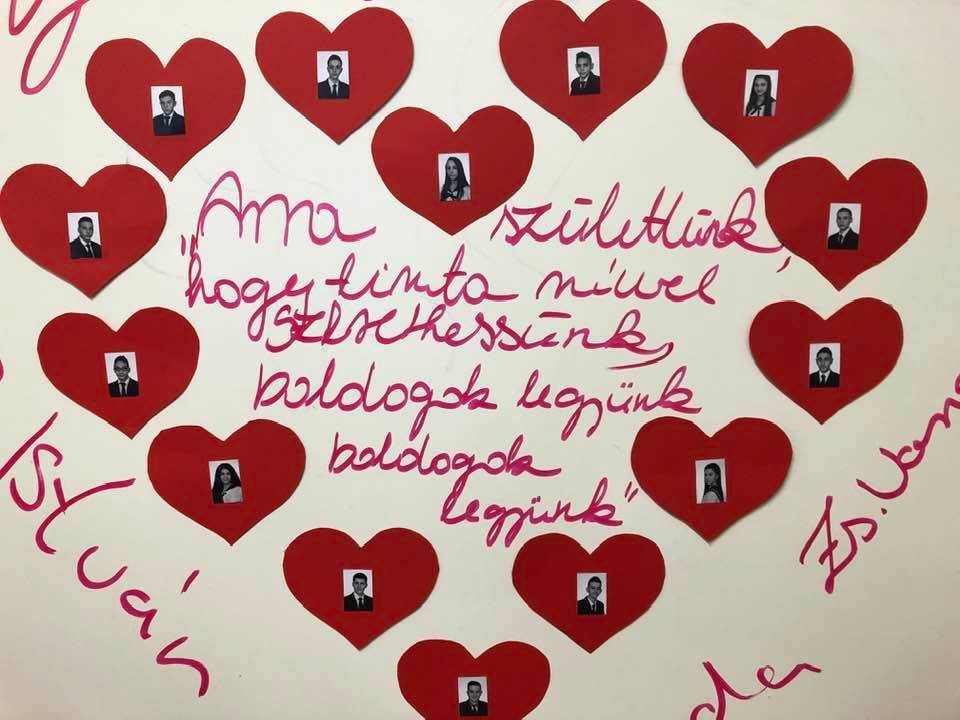 y
„Arra születtünk,
hogy tiszta szívvel
szerethessünk,
boldogok legyünk
boldogok
legyünk"
István
Zs.